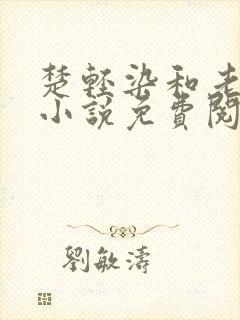 楚輕染和老
小說免費閱
劉敏濤